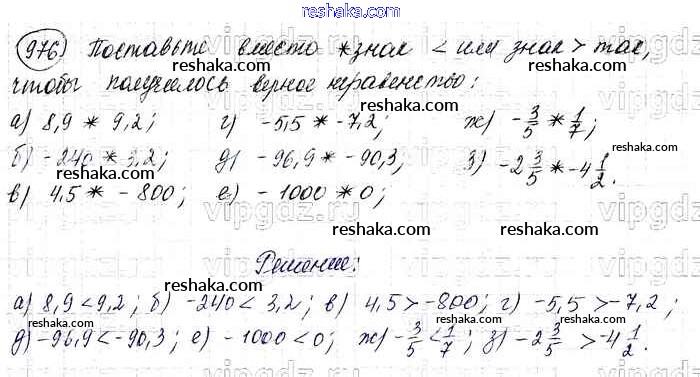 reshaka.com
976) Поставьте вместо * знак < или знак > так,
чтобы получилось верное неравенство:
reshaka.com
а) 8,9 * 9,2; г) -5,5 * -7,2; ж) -3/5 * 1/7;
reshaka.com
б) -240 * 3,2; д) -96,9 * -90,3; з) -2 3/5 * -4 1/2.
reshaka.com
в) 4,5 * -800; е) -1000 * 0;
reshaka.com
Решение:
reshaka.com
а) 8,9 < 9,2; б) -240 < 3,2; в) 4,5 > -800; г) -5,5 > -7,2;
reshaka.com
д) -96,9 < -90,3; е) -1000 < 0; ж) -3/5 < 1/7; з) -2 3/5 > -4 1/2.
reshaka.com
vipgdz.ru